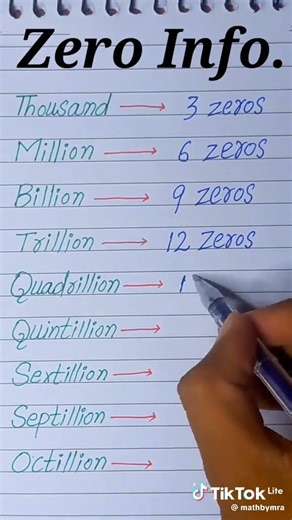 Zero Info.
Thousand → 3 zeros
Million → 6 zeros
Billion → 9 zeros
Trillion → 12 zeros
Quadrillion → 1
Quintillion →
Sextillion →
Septillion →
Octillion →
TikTok Lite
@mathbymra